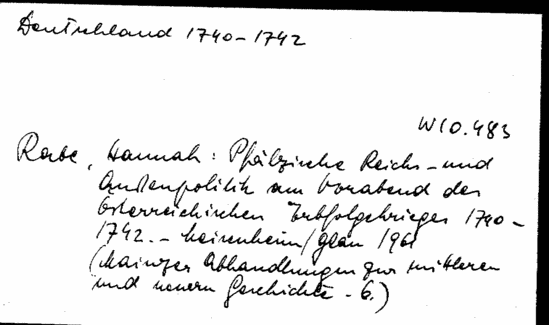 Deutschland 1740-1742
W10.483
Rabe, Hannah: Pfälzische Reichs- und
Außenpolitik am Vorabend des
Österreichischen Erbfolgekrieges 1740-
1742. - Meisenheim/Glan 1961
(Mainzer Abhandlungen zur mittleren
und neueren Geschichte - 6.)